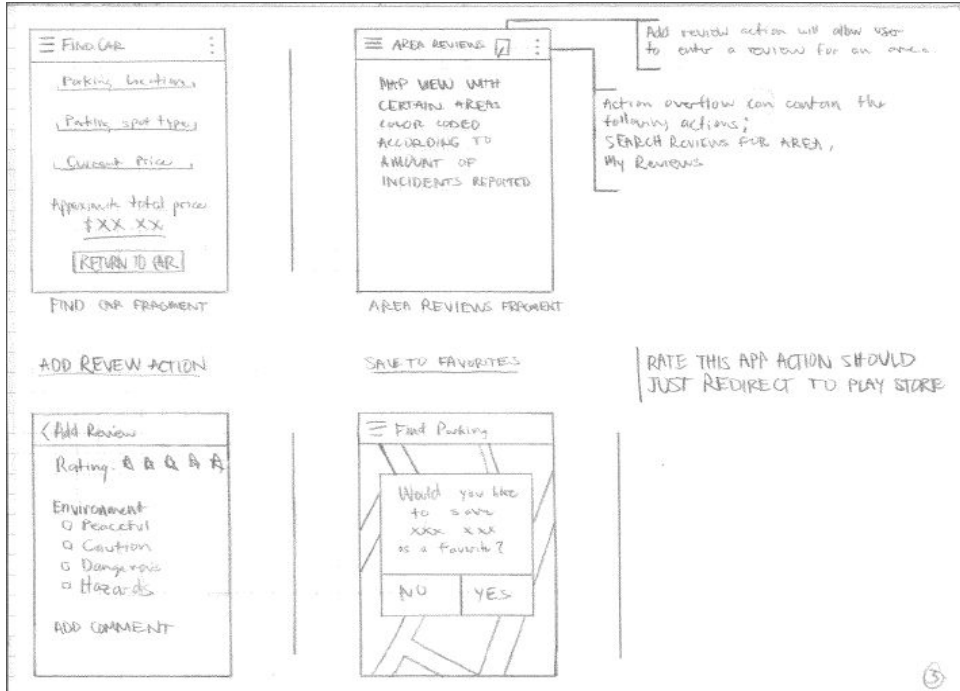 FIND CAR
Parking location
Parking spot type
Current Price
Approximate total price
$XX.XX
RETURN TO CAR
FIND CAR FRAGMENT
AREA REVIEWS
MAP VIEW WITH
CERTAIN AREAS
COLOR CODED
ACCORDING TO
AMOUNT OF
INCIDENTS REPORTED
AREA REVIEWS FRAGMENT
Add review action will allow user
to enter a review for an area.
Action overflow can contain the
following actions;
SEARCH REVIEWS FOR AREA,
My Reviews
ADD REVEW ACTION
< Add Review
Rating
Environment
Peaceful
Caution
Dangerous
Hazards
ADD COMMENT
SAVE TO FAVORITES
Find Parking
Would you like
to save
xxx xxx
as a favorite?
NO
YES
RATE THIS APP ACTION SHOULD
JUST REDIRECT TO PLAY STORE
3